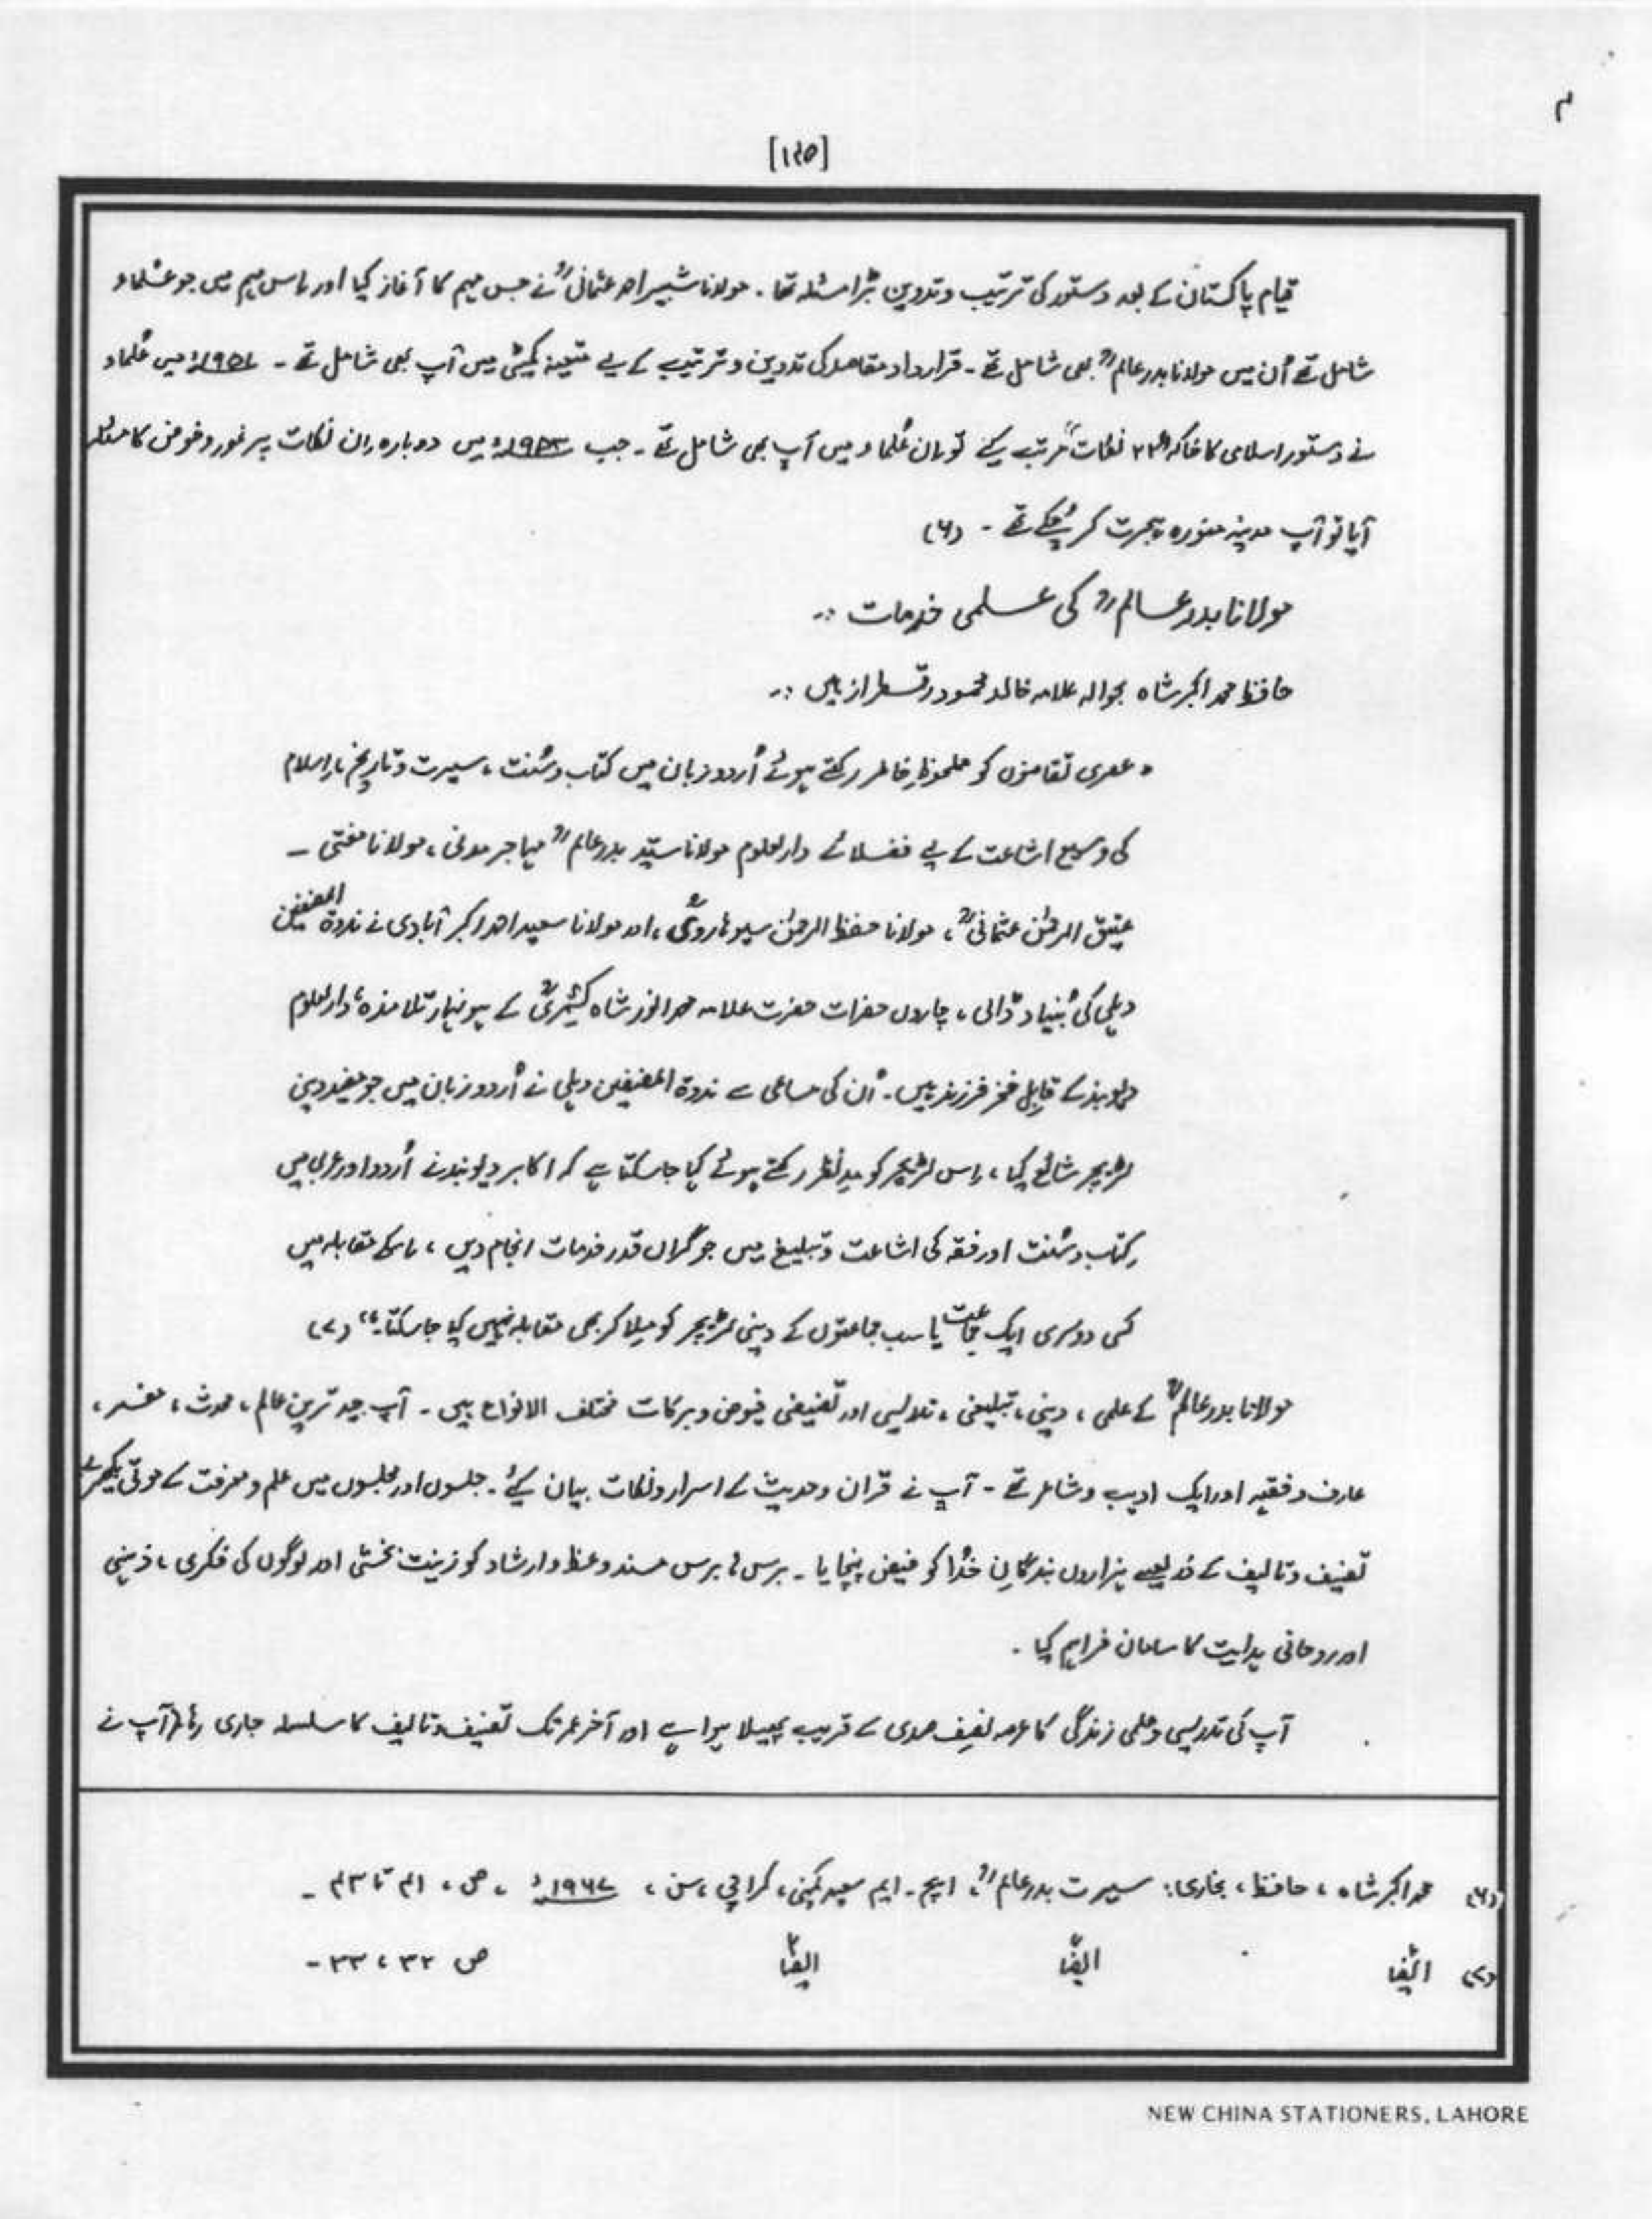 م
[۱۲۵]
قیام پاکستان کے بعد دستور کی ترتیب و تدوین بڑا مسئلہ تھا۔ مولانا شبیر احمد عثمانیؒ نے جس مہم کا آغاز کیا اور اس مہم میں جو علماء
شامل تھے اُن میں مولانا بدر عالمؒ بھی شامل تھے۔ قرارداد مقاصد کی تدوین و ترتیب کے لیے متعینہ کمیٹی میں آپ بھی شامل تھے۔ ۱۹۵۱ء میں عُلماء
نے دستور اسلامی کا خاکہ "۲۲ نکات" مرتب کیے تو ان عُلماء میں آپ بھی شامل تھے۔ جب ۱۹۵۳ء میں دوبارہ ان نکات پر غور و خوض کا مسئلہ
آیا تو آپ مدینہ منورہ ہجرت کر چُکے تھے۔ (۶)
مولانا بدر عالمؒ کی علمی خدمات :۔
حافظ محمد اکبر شاہ بحوالہ علامہ خالد محمود رقسطراز ہیں :۔
" عصری تقاضوں کو ملحوظِ خاطر رکھتے ہوئے اُردو زبان میں کتاب و سُنت ، سیرت و تاریخِ اسلام
کی وسیع اشاعت کے لیے فضلائے دارالعلوم مولانا سیّد بدر عالمؒ مہاجر مدنی ، مولانا مفتی ۔
عتیق الرحمٰن عثمانیؒ ، مولانا حفظ الرحمٰن سیوہارویؒ ، اور مولانا سعید احمد اکبر آبادی نے ندوۃ المصنفین
دہلی کی بُنیاد ڈالی ، چاروں حضرات حضرت علامہ محمد انور شاہ کشمیریؒ کے ہونہار تلامذہ ، دارالعلوم
دیوبند کے قابلِ فخر فرزند ہیں۔ اُن کی مساعی سے ندوۃ المصنفین دہلی نے اُردو زبان میں جو مفید دینی
لٹریچر شائع کیا ، اِس لٹریچر کو مدِنظر رکھتے ہوئے کہا جا سکتا ہے کہ اکابر دیوبند نے اُردو اور عربی میں
کِتاب و سُنت اور فقہ کی اشاعت و تبلیغ میں جو گراں قدر خدمات انجام دیں ، اسکے مقابلہ میں
کسی دوسری ایک جماعت یا سب جماعتوں کے دینی لٹریچر کو مِلا کر بھی مقابلہ نہیں کیا جا سکتا۔" (۷)
مولانا بدر عالمؒ کے علمی ، دینی ، تبلیغی ، تدریسی اور تصنیفی فیوض و برکات مختلف الانواع ہیں ۔ آپ جید ترین عالم ، محدث ، مفسر ،
عارف و فقیہہ اور ایک ادیب و شاعر تھے ۔ آپ نے قرآن و حدیث کے اسرار و نکات بیان کیئے۔ جلسوں اور مجلسوں میں علم و معرفت کے موتی بکھیرے
تصنیف و تالیف کے ذریعے ہزاروں بندگانِ خُدا کو فیض پہنچایا ۔ برس ہا برس مسند وعظ و ارشاد کو زینت بخشی اور لوگوں کی فکری ، ذہنی
اور روحانی ہدایت کا سامان فراہم کیا ۔
آپ کی تدریسی و علمی زندگی کا عرصہ نصف صدی کے قریب پھیلا ہوا ہے اور آخر عمر تک تصنیف و تالیف کا سلسلہ جاری رہا۔ آپ نے
(۶) محمد اکبر شاہ ، حافظ ، بخاری : سیرت بدر عالمؒ ، ایچ ۔ ایم سعید کمپنی ، کراچی ، سن ، ۱۹۶۷ء ، ص ، ۴۱ تا ۴۳ ۔
(۷) ایضًا ایضًا ایضًا ص ۳۲ ، ۳۳ ۔
NEW CHINA STATIONERS, LAHORE